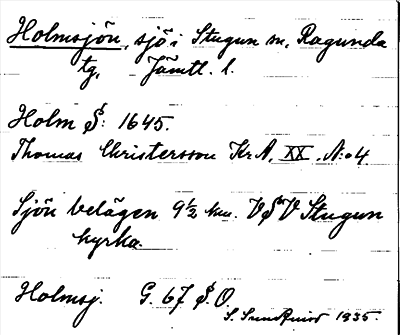 Holmsjön, sjö i Stugun sn, Ragunda
tg, Jämtl. l.
Holm S: 1645.
Thomas Christersson Kr.A, XX, N:o 4
Sjön belägen 9½ km. VSV Stugun
kyrka.
Holmsj. G. 67 S.O.
S. Sundkvist 1935.